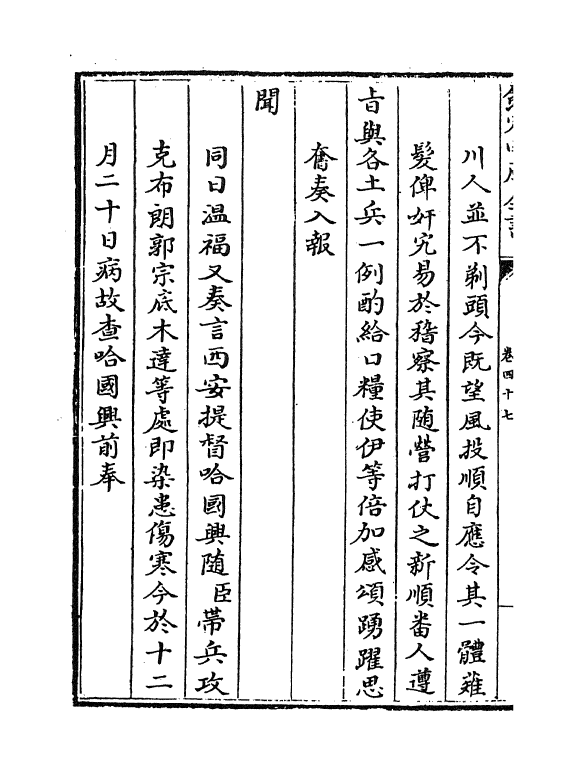 欽定四庫全書
卷四十七
川人並不剃頭今既望風投順自應令其一體薙
髮俾奸宄易於稽察其隨營打仗之新順番人遵
㫖與各土兵一例酌給口糧使伊等倍加感頌踴躍思
奮奏入報
聞
同日温福又奏言西安提督哈國興隨臣帶兵攻
克布朗郭宗底木達等處即染患傷寒今於十二
月二十日病故查哈國興前奉